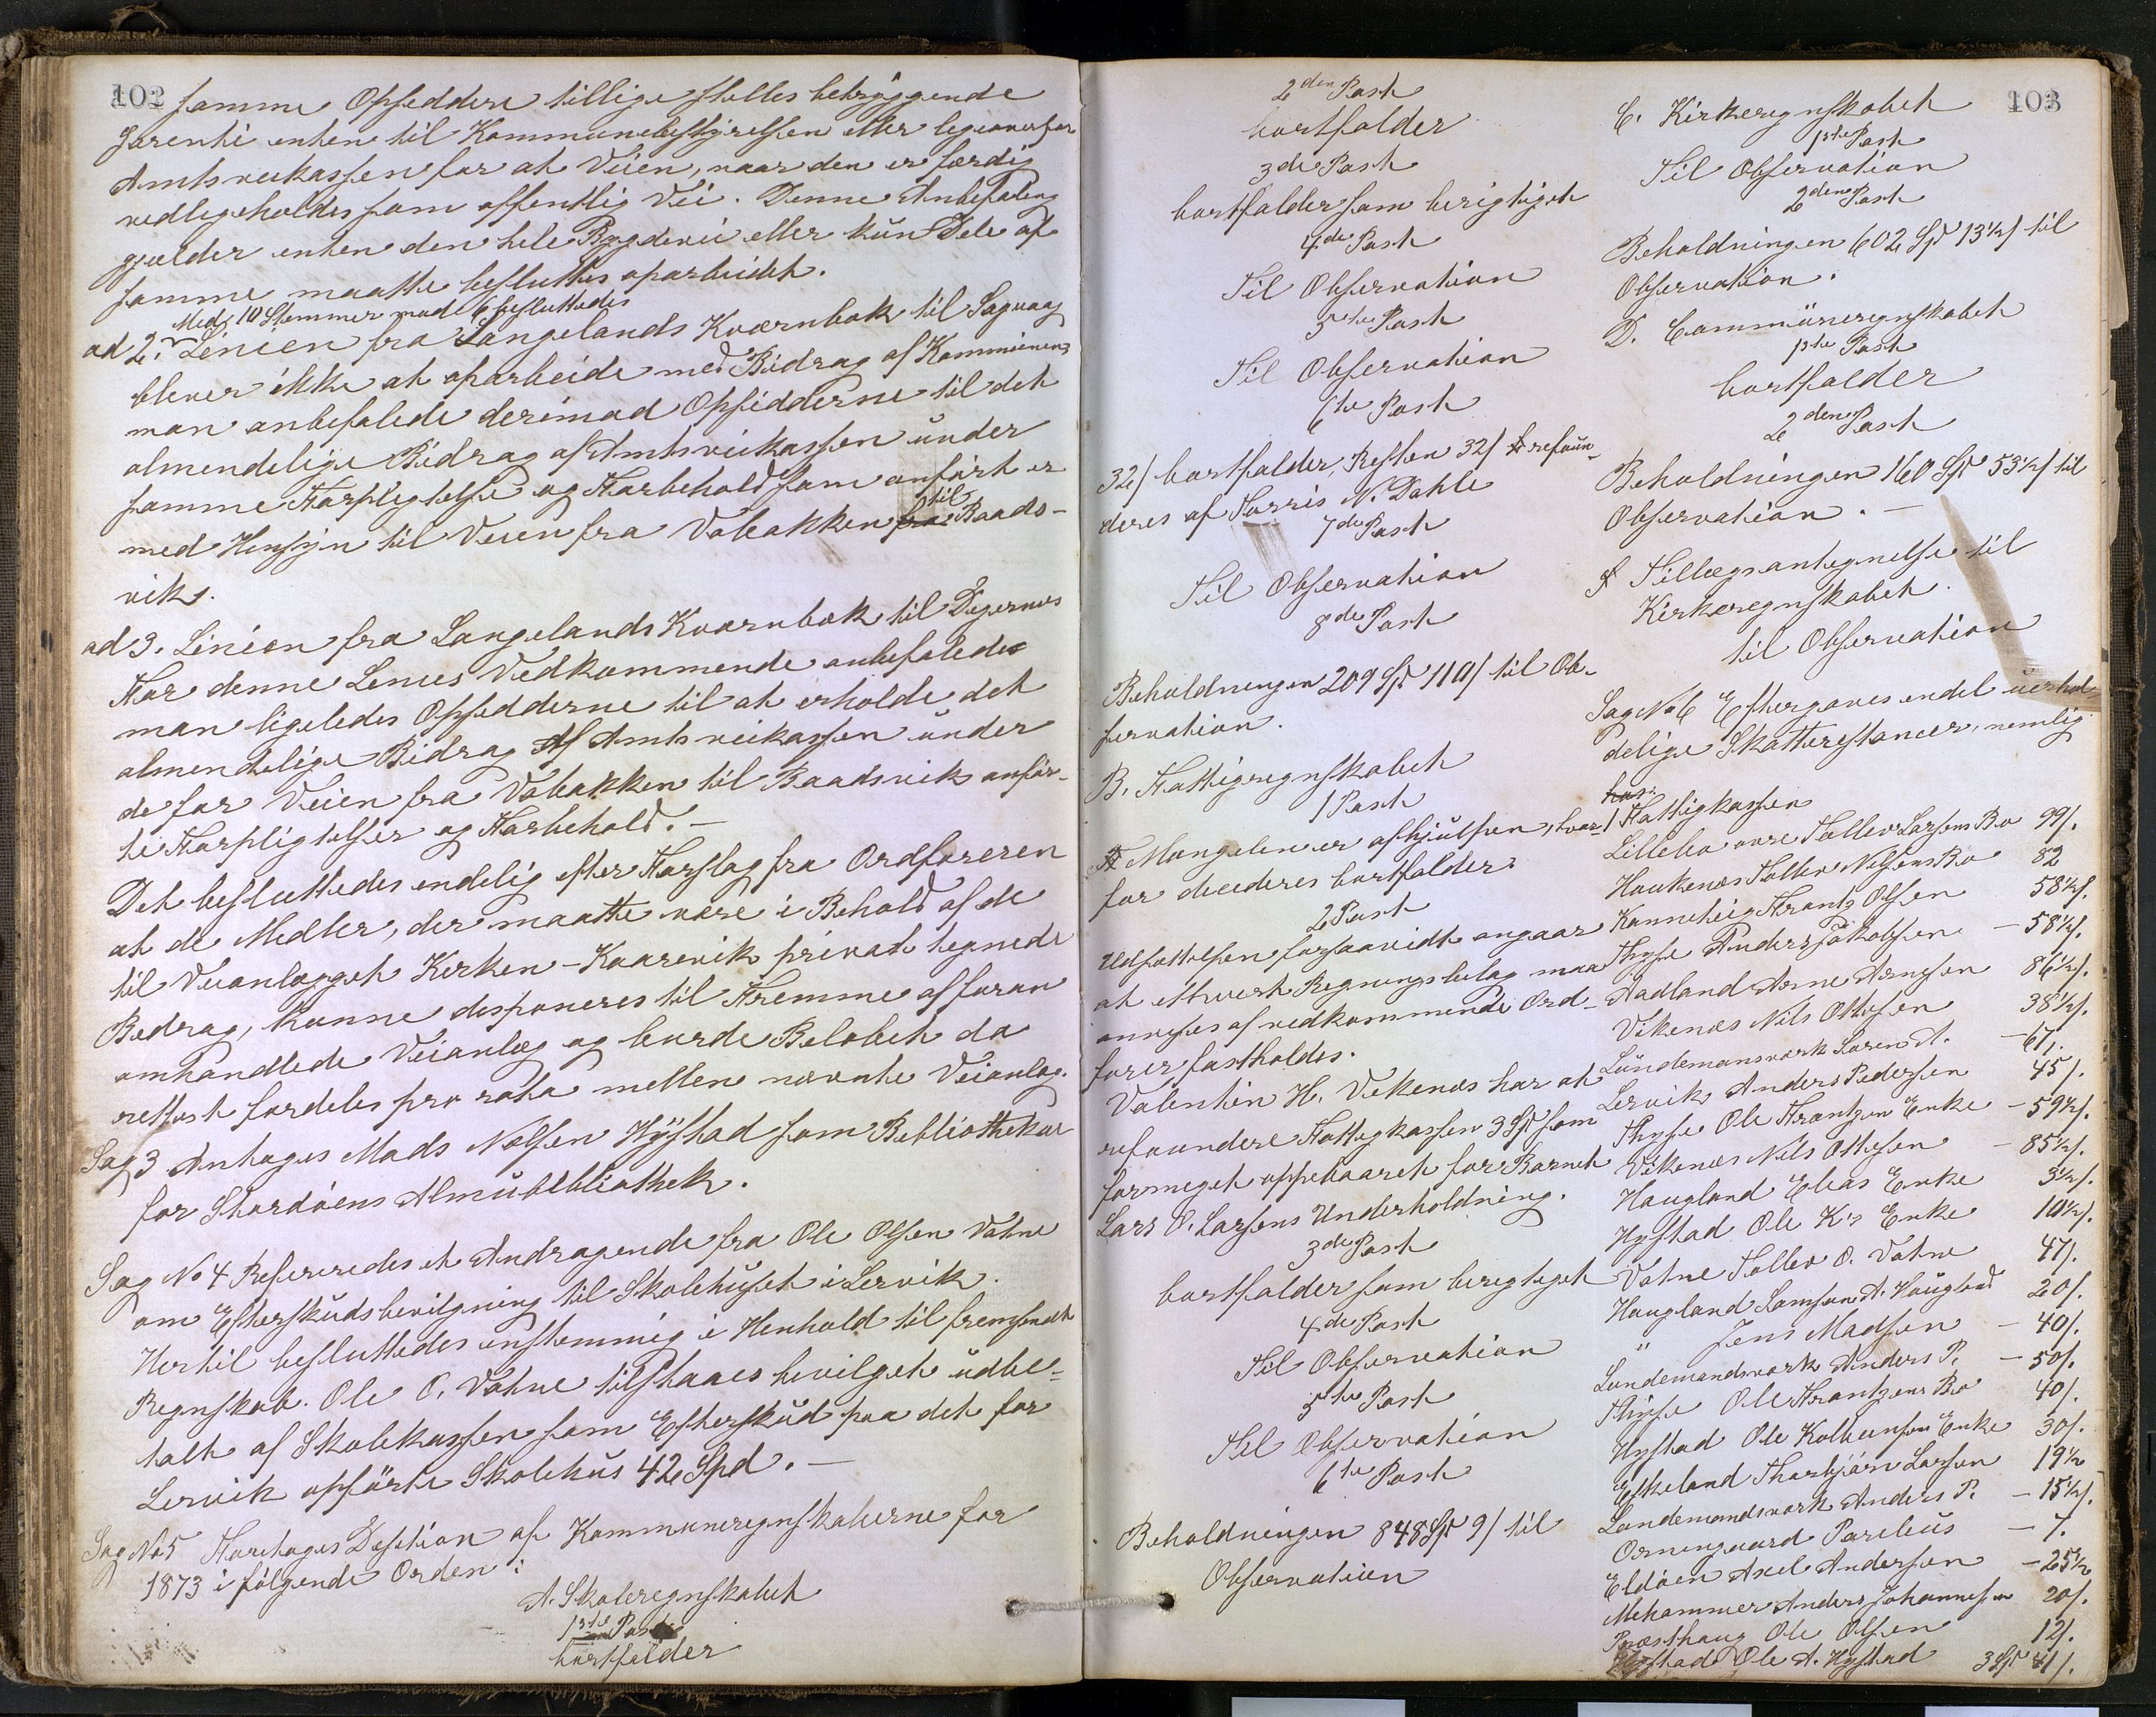 102
samme Opsiddere tillige stilles betryggende
Garenti enten til Kommunebestyrelsen eller ligeoverfor
Amtsveikassen for at Veien, naar den er færdig
vedligeholdes som offentlig Vei. Denne Anbefaling
gjælder enten den hele Bygdevei eller kun Dele af
samme maatte besluttes oparbeidet.
Med 10 Stemmer mod 6 besluttedes
ad 2. Linien fra Langelands Kværnbæk til Sagvaag
bliver ikke at oparbeide med Bidrag af Kommunen,
man anbefalede derimod Opsidderne til det
almendelige Bidrag af Amtsveikassen under
samme Forpligtelse og Forbehold som anført er
med Hensyn til Veien fra Vabakken til Baads-
vik.
ad 3. Linien fra Langelands Kværnbæk til Digernæs
For denne Linies Vedkommende anbefaledes
man ligeledes Opsidderne til at erholde det
almendelige Bidrag af Amtsveikassen under
de for Veien fra Vabakken til Baadsvik anfør-
te Forpligtelser og Forbehold. –
Det besluttedes endelig efter Forslag fra Ordføreren
at de Midler, der maatte være i Behold af de
til Veianlægget Kirken – Kaarevik privat tegnede
Bidrag, kunne disponeres til Fremme af foran
omhandlede Veianlæg og burde Beløbet da
rettest fordeles pro rata mellem nævnte Veianlæg.
Sag 3 Antages Mads Nilsen Hystad som Bibliothekar
for Stordøens Almubibliothek.
Sag No 4 Refereredes et Andragende fra Ole Olsen Vatne
om Efterskudsbevilgning til Skolehuset i Lervik.
Hertil besluttedes enstemmig i Henhold til fremsendt
Regnskab. Ole O. Vatne tilstaaes bevilget udbe-
talt af Skolekassen som Efterskud paa det for
Lervik opførte Skolehus 42 Spd. –
Sag No 5 Foretages Desition af Kommuneregnskaberne for
1873 i følgende Orden:
A. Skoleregnskabet
1ste Post
bortfalder
2den Post
bortfalder
3die Post
bortfalder som berigtiget
4de Post
Til Observation
5te Post
Til Observation
6te Post
32/ bortfalder, Resten 32/ refoun-
deres af Torris N. Dahle
7de Post
Til Observation
8de Post
Beholdningen 209 Spd 110/ til Ob-
servation.
B. Fattigregnskabet
1 Post
Mangelen er afhjulpen, hvor-
for decideres bortfalder.
2 Post
Udsættelsen forsaavidt angaar
at ethvert Regningsbilag maa
anvises af vedkommende Ord-
fører fastholdes.
Valentin H. Vikenæs har at
refoundere Fattigkassen 3 Spd som
formeget oppebaaret for Barnet
Lars O. Larsens Underholdning.
3die Post
bortfalder som berigtiget
4de Post
Til Observation
5te Post
Til Observation
6te Post
Beholdningen 848 Spd 9/ til
Observation
103
C. Kirkeregnskabet
1ste Post
Til Observation
2den Post
Beholdningen 602 Spd 13½/ til
Observation.
D. Communeregnskabet
1ste Post
bortfalder
2den Post
Beholdningen 160 Spd 53½/ til
Observation. –
Tillægsantegnelse til
Kirkeregnskabet.
til Observation
Sag No 6 Eftergaves endel uerhol-
delige Skatterestancer, nemlig
hos:
1 Fattigkassen
Lillebø øvre Tollev Larsens Bo 99/.
Haukenæs Tollev Nilsens Bo 82
Kannehei Frantz Olsen 58½/.
Thyse Anders Jakobsen – 58½/.
Aadland Arne Arnesen 86½/.
Vikenæs Nils Ottesen 38½/.
Lundemansværk Søren A. – 61/.
Lervik Anders Pedersen 45/.
Thyse Ole Frantzen Enke – 59½/.
Vikenæs Nils Ottesen – 85½/.
Haugland Elias Enke 3½/.
Hystad Ole K's Enke 10½/.
Vatne Tollev O. Vatne 47/.
Haugland Samson A. Haugland 20/.
" Jens Madsen – 40/.
Lundemandsværk Anders P. – 50/.
Thyse Ole Frantzens Bo 40/.
Hystad Ole Kolbensen Enke 30/.
Eskeland Thorbjørn Larsen 19½
Lundemandsværk Anders P. – 15½/.
Ørnengaard Parelius – 7.
Eldøen Axel Andersen – 25½
Mehammer Anders Johannesen 20/.
Præsthaug Ole Olsen 12/.
Hystad Ole A. Hystad 3 Spd 41/.